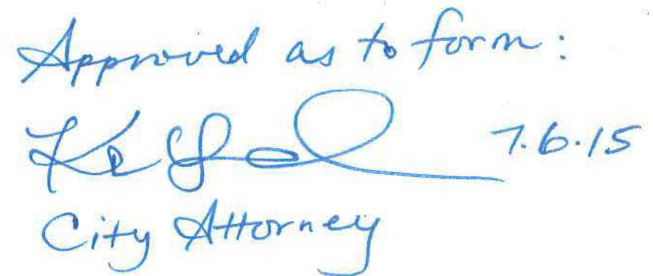 Approved as to form:
7.6.15
City Attorney